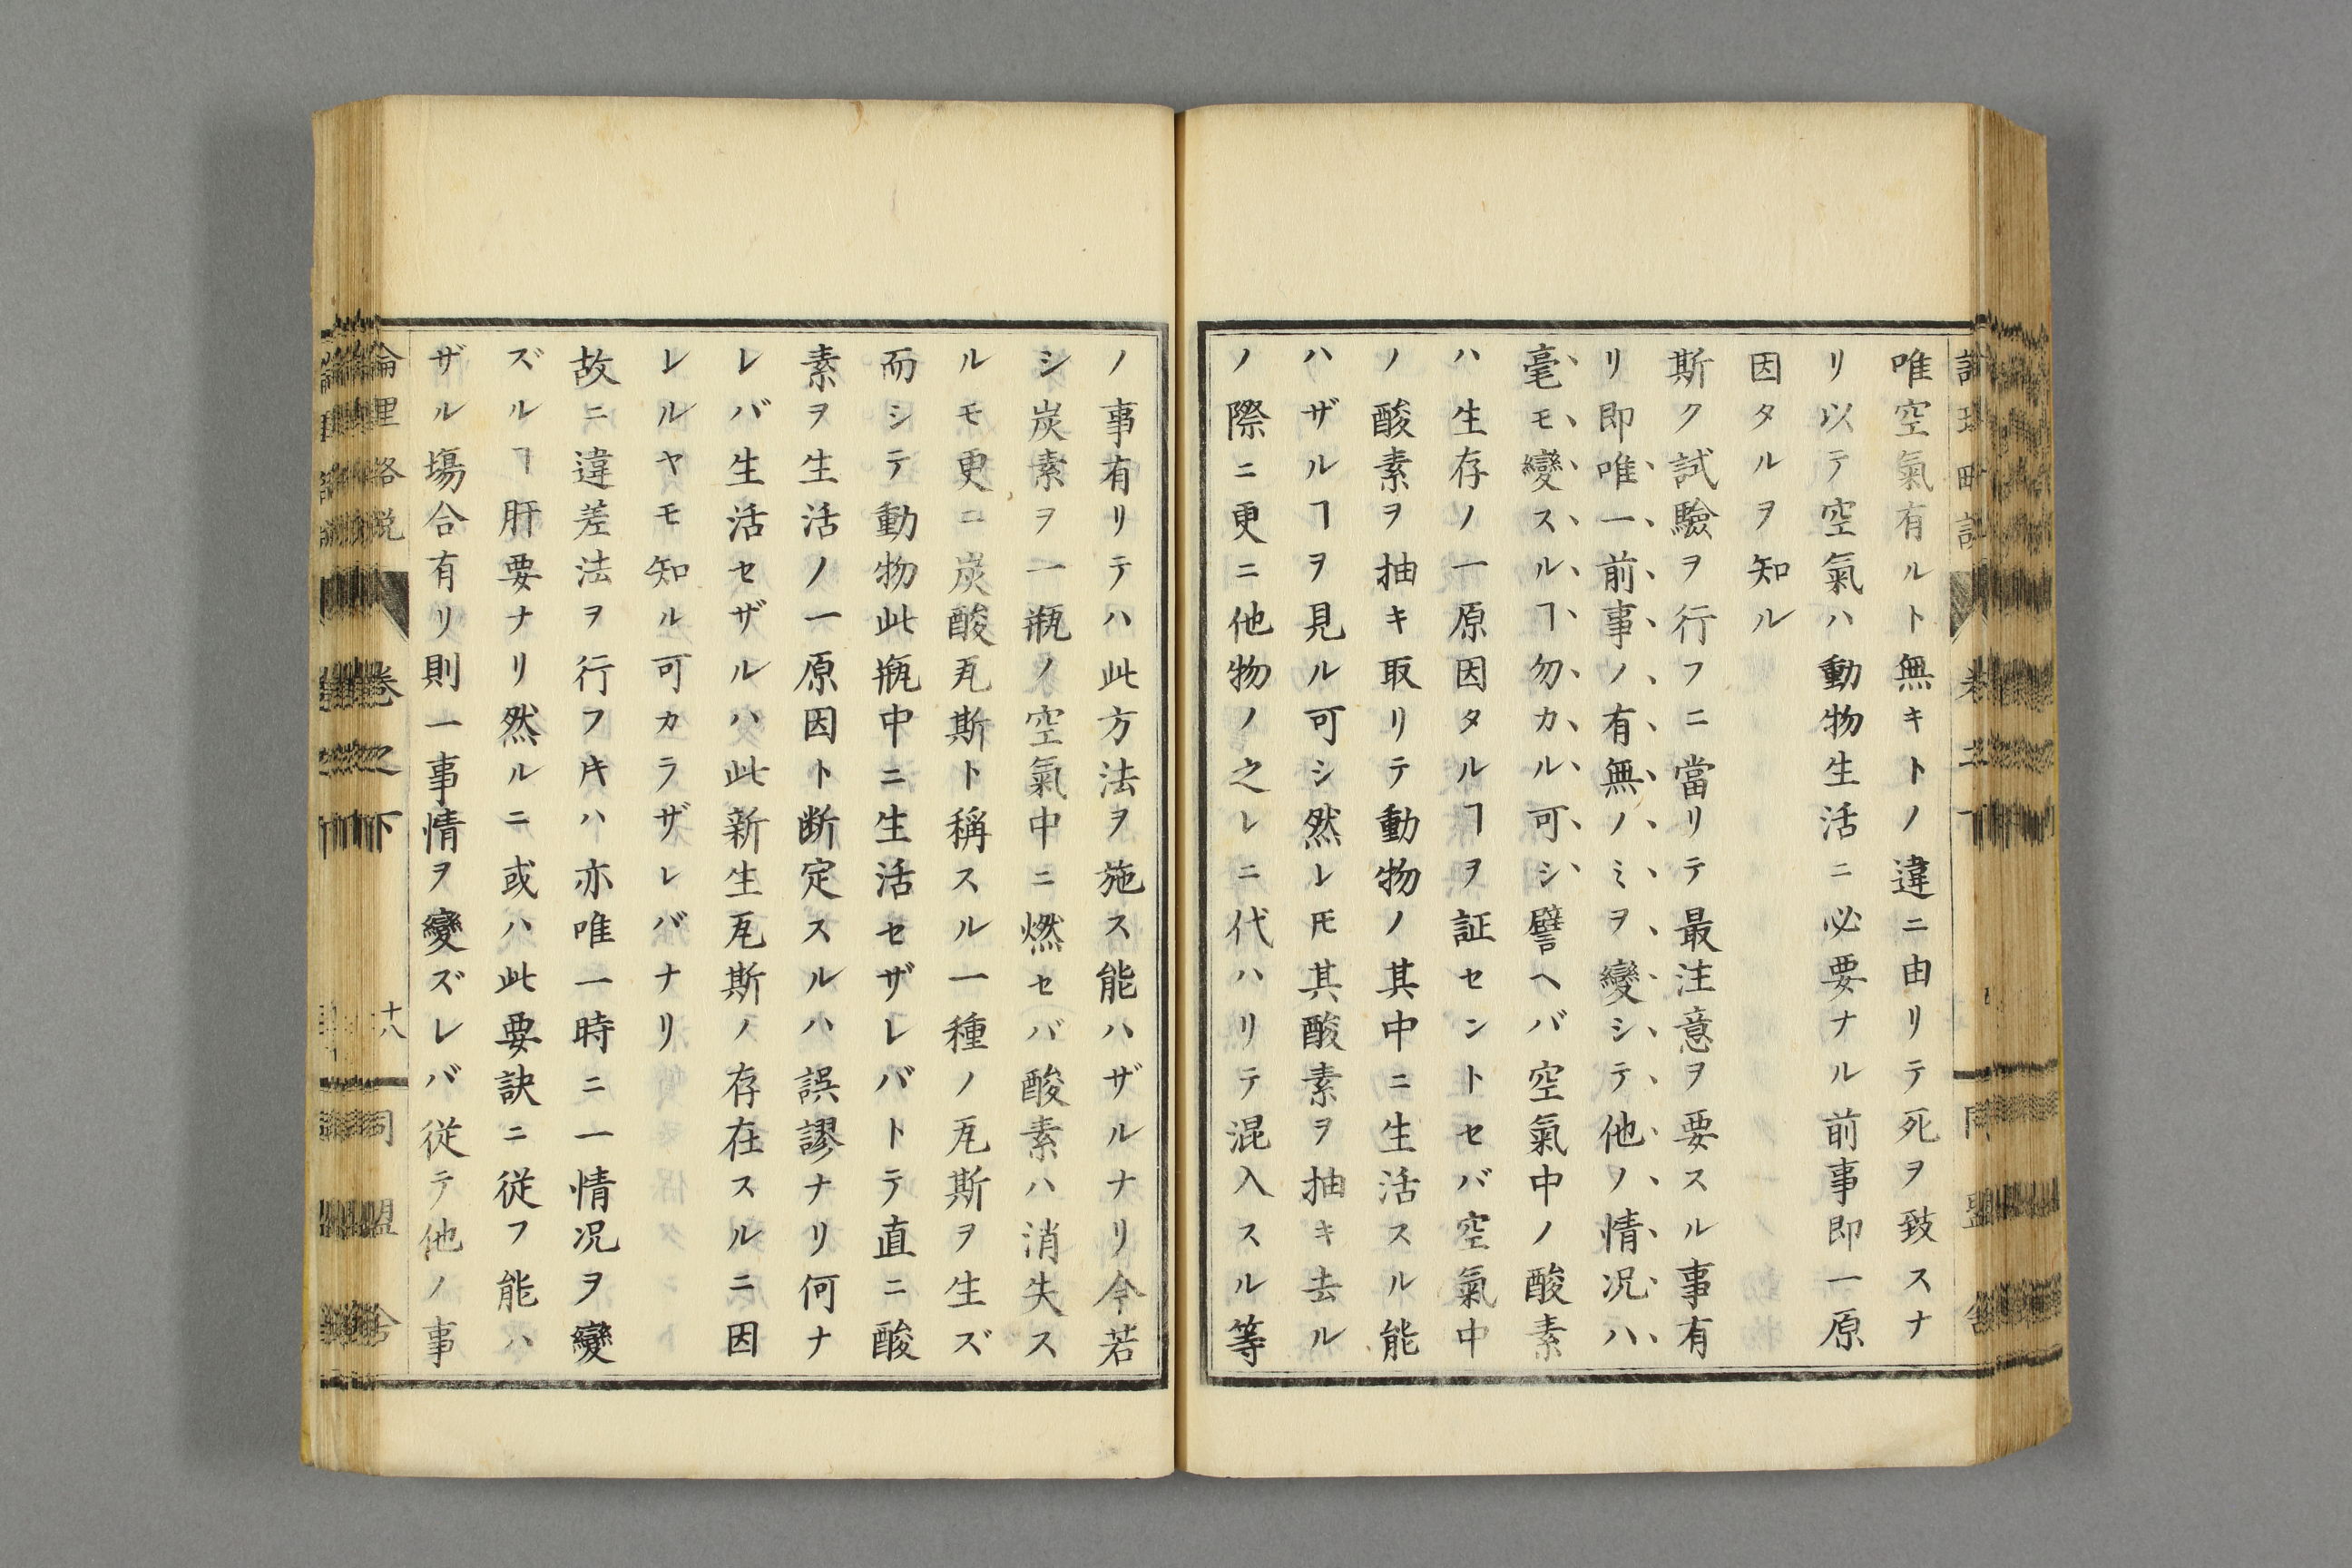 唯空氣有ルト無キトノ違ニ由リテ死ヲ致スナ
リ以テ空氣ハ動物生活ニ必要ナル前事即一原
因タルヲ知ル
斯ク試驗ヲ行フニ當リテ最注意ヲ要スル事有
リ即唯一前事ノ有無ノミヲ變シテ他ノ情况ハ
毫モ變スルヿ勿カル可シ譬ヘバ空氣中ノ酸素
ハ生存ノ一原因タルヿヲ証セントセバ空氣中
ノ酸素ヲ抽キ取リテ動物ノ其中ニ生活スル能
ハザルヿヲ見ル可シ然レ𪜈其酸素ヲ抽キ去ル
ノ際ニ更ニ他物ノ之レニ代ハリテ混入スル等
ノ事有リテハ此方法ヲ施ス能ハザルナリ今若
シ炭素ヲ一瓶ノ空氣中ニ燃セバ酸素ハ消失ス
ルモ更ニ炭酸瓦斯ト稱スル一種ノ瓦斯ヲ生ズ
而シテ動物此瓶中ニ生活セザレバトテ直ニ酸
素ヲ生活ノ一原因ト断定スルハ誤謬ナリ何ナ
レバ生活セザルハ此新生瓦斯ノ存在スルニ因
レルヤモ知ル可カラザレバナリ
故ニ違差法ヲ行フ𪜈ハ亦唯一時ニ一情况ヲ變
ズルヿ肝要ナリ然ルニ或ハ此要訣ニ従フ能ハ
ザル塲合有リ則一事情ヲ變ズレバ従テ他ノ事
論理略説 卷之下 十八 同盟舎